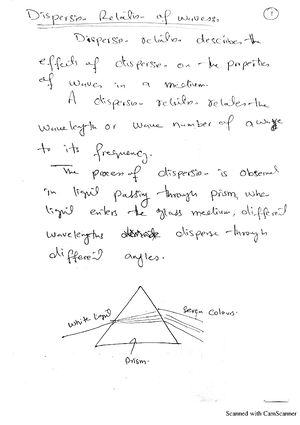 Dispersion Relation of waves.
1
Dispersion relation describes the
effects of dispersion on the properties
of waves in a medium.
A dispersion relation relates the
wavelength or wave number of a wave
to its frequency.
The process of dispersion is observed
in liquid passing through prism, when
liquid enters the glass medium, different
wavelengths disperse through
different angles.
White liquid
Seven Colours.
prism.
Scanned with CamScanner